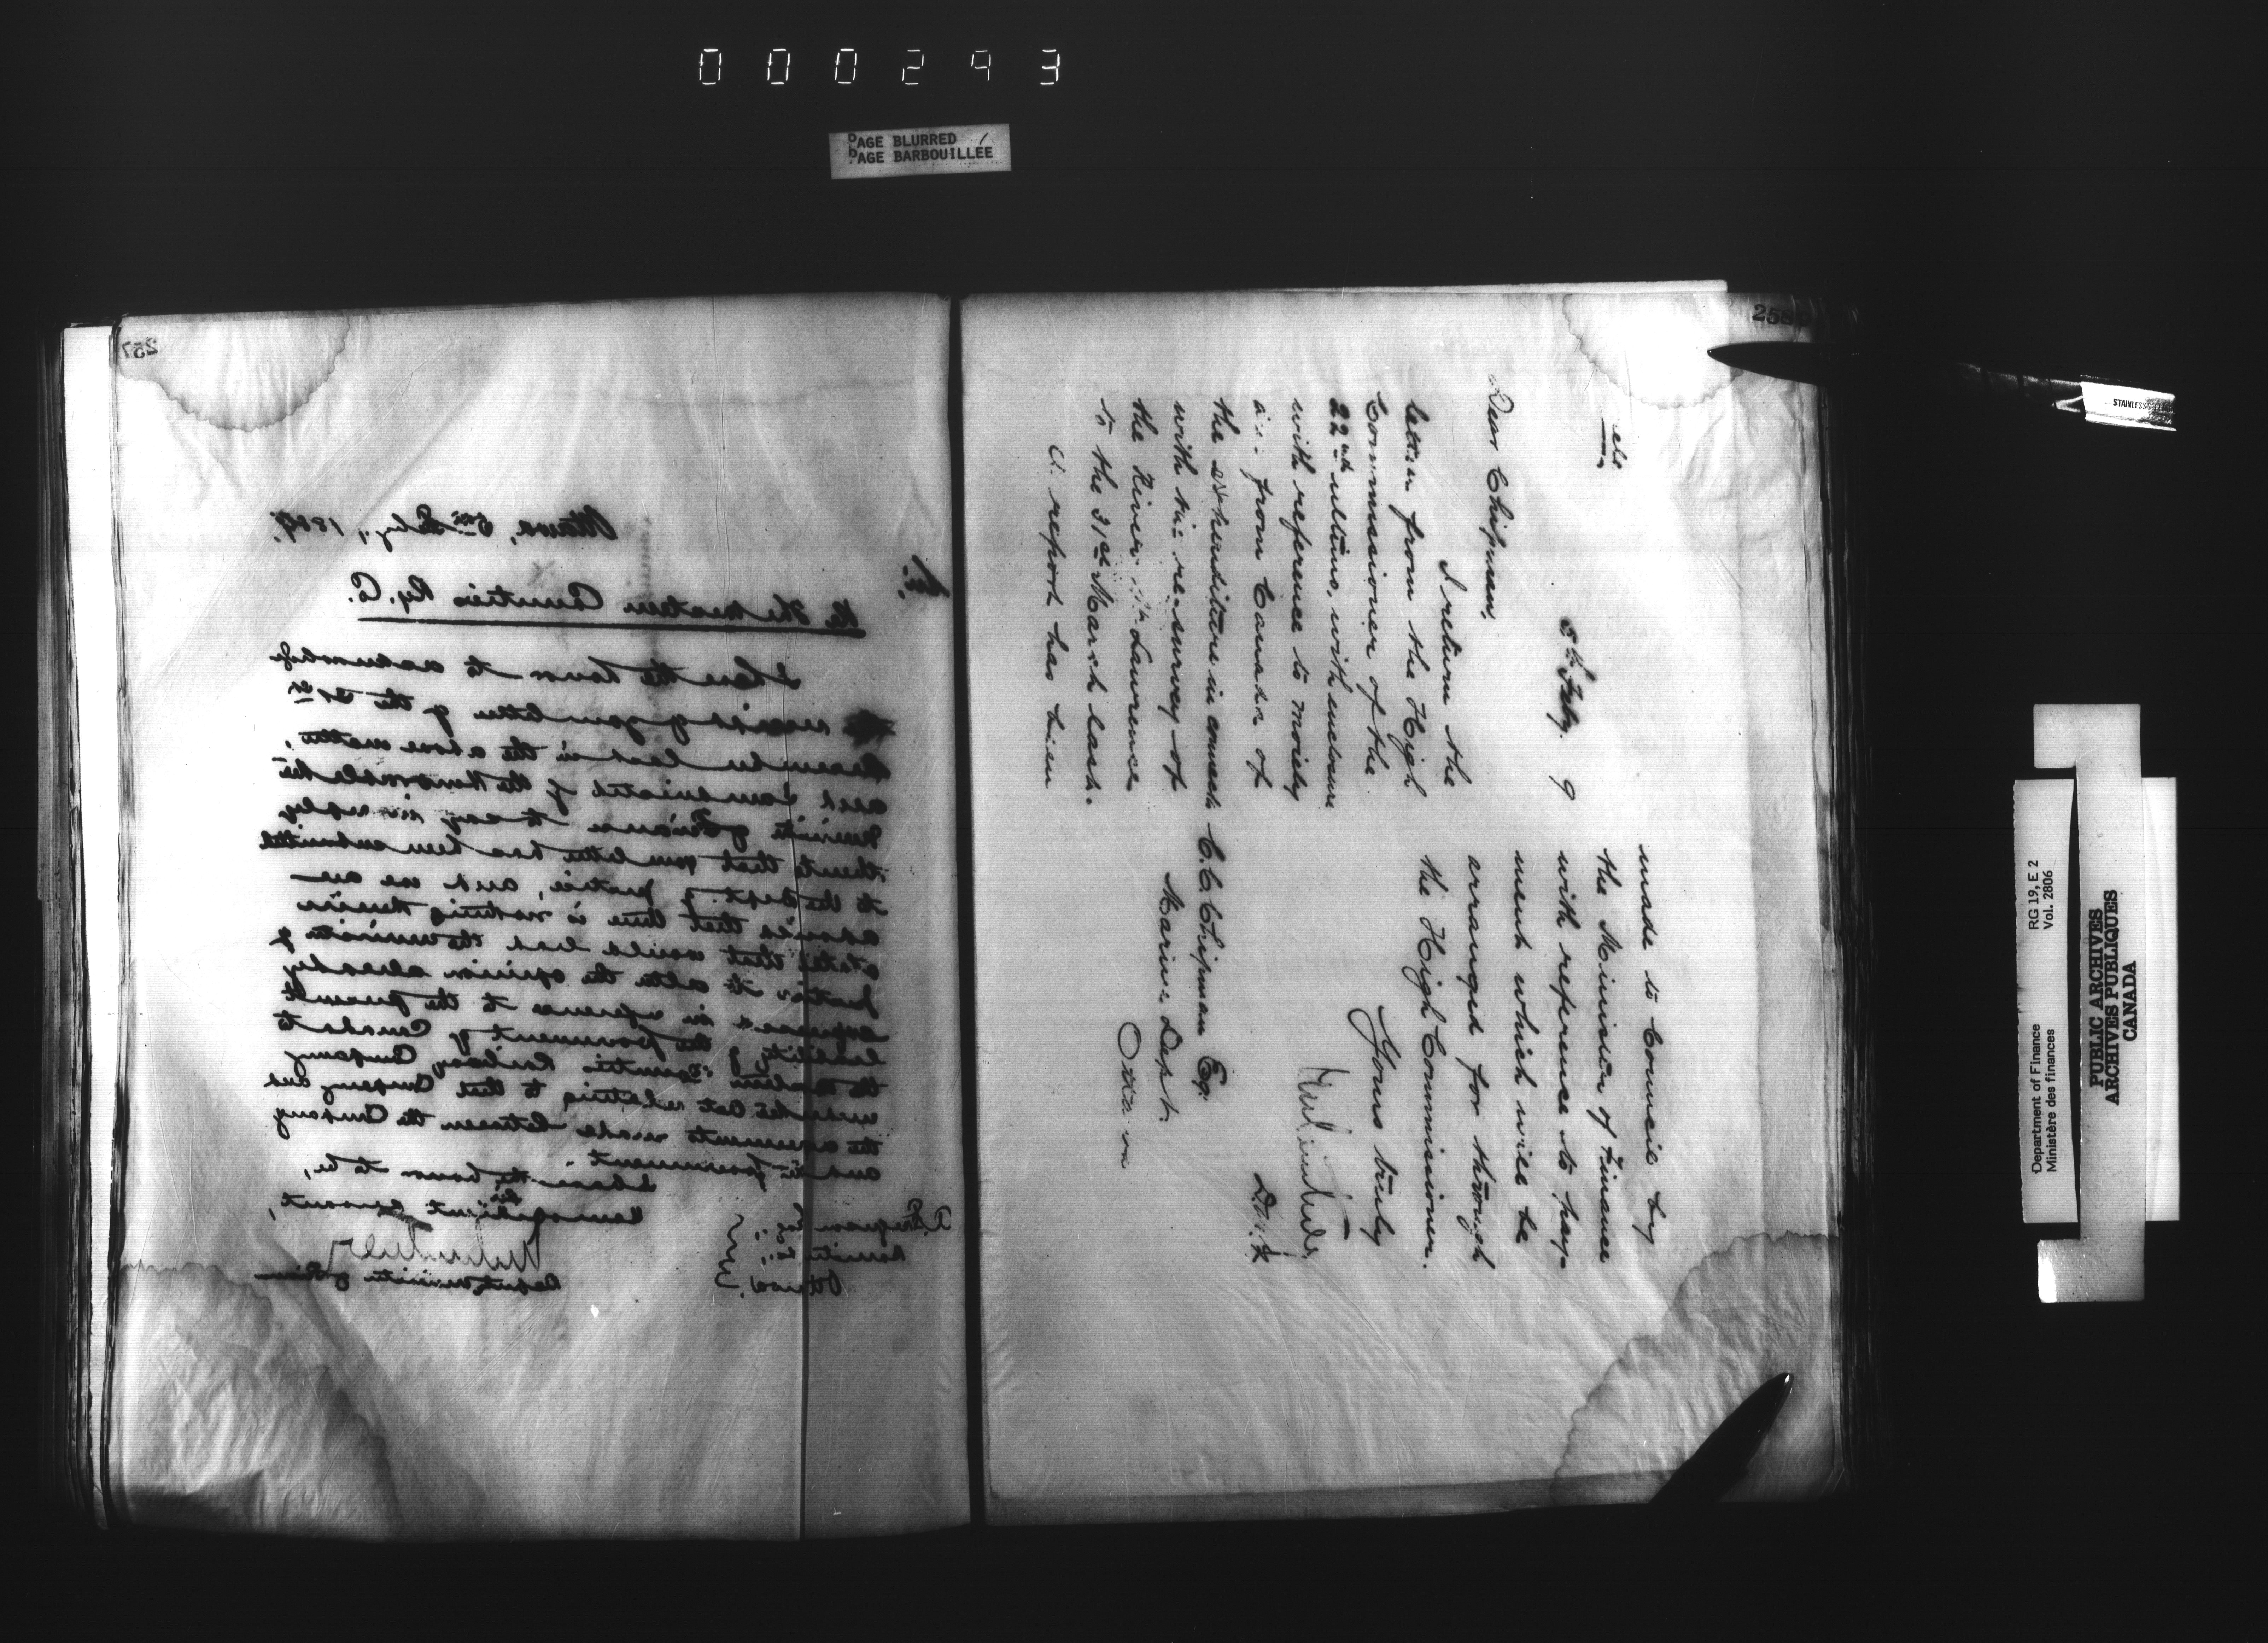 000293
PAGE BLURRED
PAGE BARBOUILLÉE
257
Ottawa, 5th Feby., 1889.
Sir,
Re The Western Counties Ry. Co.
I have the honor to acknowledge
receipt of your letter of the 21st
December last in the above matter,
and am directed by the Honorable the
Minister of Finance to say in reply
thereto that your letter has been submitted
to the Dept. of Justice, and we are
advised that there is nothing therein
stated that would lead the Minister of
Justice to alter the opinion already
expressed in reference to the present
liability of the Government of Canada to
the Western Counties Railway Company
under the Act relating to that Company and
the agreements made between the Company
and the Government
I have the honor to be,
Sir,
Your obedient servant,
Deputy Minister of Finance
Esq.,
Ottawa.
258
5th Feby. 9
Dear Chipman,
I return the
letter from the High
Commissioner of the
22nd ultimo, with enclosure
with reference to moiety
due from Canada of
the expenditure in connect
with the re-survey of
the River St. Lawrence
to the 31st March last.
A report has been
made to Council by
the Minister of Finance
with reference to pay-
ment which will be
arranged for through
the High Commissioner.
Yours truly
C.C. Chipman Esq.
Marine Dept.
Ottawa
STAINLESS
Department of Finance
Ministère des finances
RG 19, E 2
Vol. 2806
PUBLIC ARCHIVES
ARCHIVES PUBLIQUES
CANADA